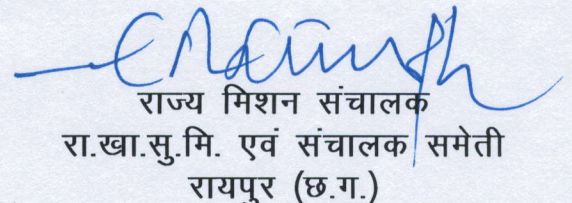 राज्य मिशन संचालक
रा.खा.सु.मि. एवं संचालक समेती
रायपुर (छ.ग.)